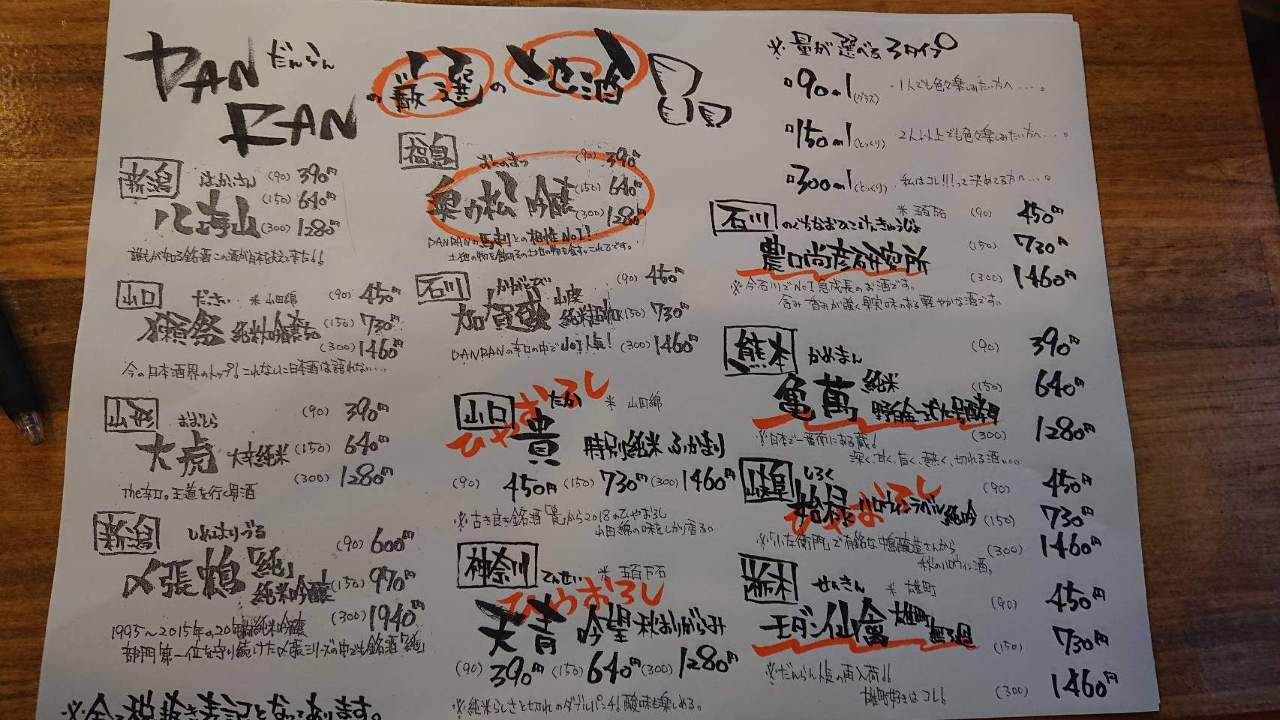 DANRAN だんらん
の厳選の地酒
※量が選べる3タイプ
90ml(グラス) 1人でも色々楽しみたい方へ…。
150ml(とっくり) 2人以上でも色々楽しみたい方へ…。
300ml(とっくり) 私はコレ!!!って決めてる方へ…。
新潟 はっかいさん (90) 390円
八海山 (150) 640円
(300) 1280円
山口 だっさい 米 山田錦 (90) 450円
獺祭 純米吟醸 (150) 730円
(300) 1460円
今の日本酒界のトップ!これないに日本酒は語れない…
山形 おおとら (90) 390円
大虎 大辛純米 (150) 640円
(300) 1280円
The辛口。王道を行く酒
新潟 しめはりづる (90) 600円
〆張鶴「純」
純米吟醸 (150) 970円
(300) 1940円
1995〜2015年の20年間純米吟醸
部門第一位を守り続けた〆張シリーズの中でも銘酒「純」
福島 おくのまつ (90) 390円
奥の松 吟醸 (150) 640円
(300) 1280円
DANRANの馬刺しとの相性No1!
石川 かがとび (90) 450円
加賀鳶 山廃
純米超辛口 (150) 730円
DANRANの辛口の中でNo1人気! (300) 1460円
山口 たか 米 山田錦
ひやおろし
貴 特別純米 ふかまり
(90) 450円 (150) 730円 (300) 1460円
※古き良き銘酒「貴」から2018のひやおろし
山田錦の味しっかり香る。
神奈川 てんせい 米 五百万石
ひやおろし
天青 吟望 秋おりがらみ
(90) 390円 (150) 640円 (300) 1280円
※純米らしさと切れのダブルパンチ!酸味も楽しめる。
石川 のぐちなおひこけんきゅうじょ 米 五百万石 (90) 450円
農口尚彦研究所 (150) 730円
(300) 1460円
※今石川でNo1急成長のお酒です。
含み香りが強く果実味のある軽やかな酒です。
熊本 かめまん (90) 390円
亀萬 純米 (150) 640円
野白金一式九号酵母
(300) 1280円
※日本で一番南にある蔵!
深く、甘く、旨く、熱く、切れる酒…
しろく (90) 450円
ひやおろし
始禄 ハロウィンラベル純吟 (150) 730円
(300) 1460円
※「小左衛門」で有名な中島醸造さんから
秋のハロウィン酒。
栃木 せんきん 米 雄町 (90) 450円
モダン仙禽 雄町
無濾過 (150) 730円
※だんらん人気の再入荷!!
雄町好きはコレ! (300) 1460円
※全て税抜き表記となっております。